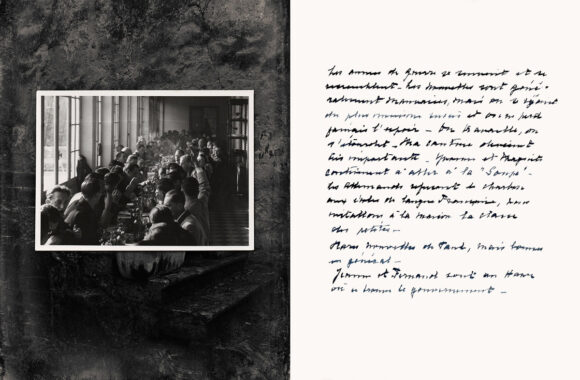 Les années de guerre se suivent et se
ressemblent - Les nouvelles sont géné-
ralement mauvaises, mais on
du plus mauvais et on ne perd
jamais l'espoir - On travaille, on
s'étourdit - Ma cantine devient
très importante - Yvonne et
continuent d'aller à la "Soupe" -
Les Allemands refusant le charbon
aux écoles de langue Française, nous
installons à la maison la classe
des petites -
Rares nouvelles de Paul, mais bonnes
en général -
Jeanne et Fernand sont au Havre
où se trouve le gouvernement -